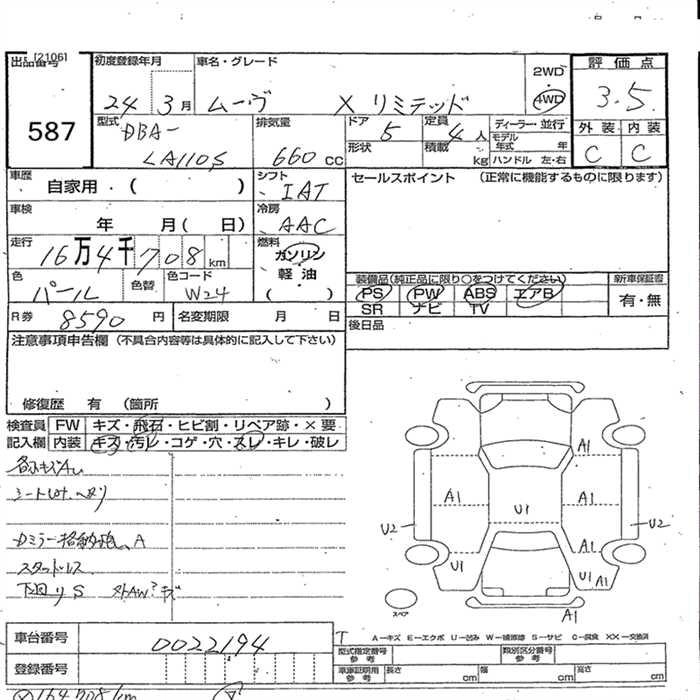 [2106]
出品番号 587
初度登録年月 24 3月
車名・グレード ムーヴ X リミテッド
2WD
4WD
評価点 3.5
外装 内装
C C
型式 DBA-
LA110S
排気量 660 cc
ドア 5
形状
定員 4人
積載 kg
ディーラー・並行
モデル年式 年
ハンドル 左・右
車歴 自家用・( )
シフト IAT
セールスポイント (正常に機能するものに限ります)
車検 年 月( 日)
冷房 AAC
走行 16万4千708km
燃料 ガソリン・
軽油
( )
色 パール 色替 色コード W24
装備品(純正品に限り○をつけてください)
PS PW ABS エアB
SR ナビ TV
新車保証書
有・無
R券 8590 円 名変期限 月 日
後日品
注意事項申告欄 (不具合内容等は具体的に記入して下さい)
修復歴 有 (箇所 )
検査員 FW キズ・飛石・ヒビ割・リペア跡・×要
記入欄 内装 キズ・汚レ・コゲ・穴・スレ・キレ・破レ
シート
Dミラー格納 A
スタッドレス
下回り S
A1
A1 A1
U1
U2 U2
A1
U1 U1 A1
A1
スペア
A-キズ E-エクボ U-凹み W-補修跡 S-サビ C-腐食 XX-交換済
車台番号 0022194
登録番号
型式指定番号 参考
類別区分番号 参考
車庫証明用 参考 長さ cm 幅 cm 高さ cm
164708km